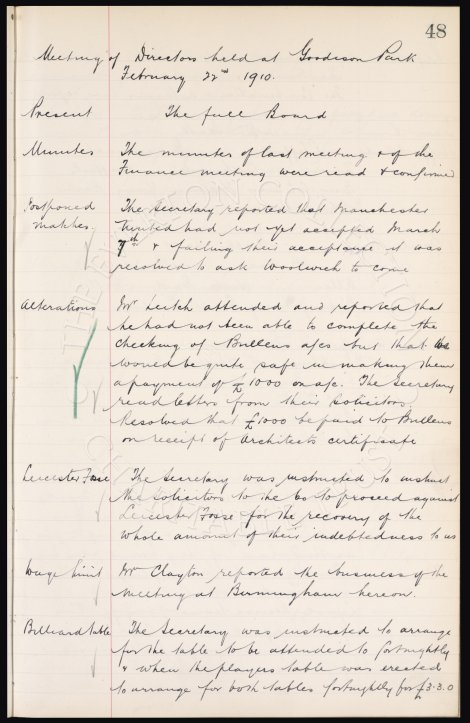 48
Meeting of Directors held at Goodison Park
February 22nd 1910.
Present The full Board
Minutes The minutes of last meeting & of the
Finance meeting were read & confirmed
Postponed The Secretary reported that Manchester
matches. United had not yet accepted March
7th & failing their acceptance it was
resolved to ask Woolwich to come
Alterations Mr Leitch attended and reported that
he had not been able to complete the
checking of Bullens a/cs but that we
would be quite safe in making them
a payment of £1000 on a/c. The Secretary
read letters from their Solicitors
Resolved that £1000 be paid to Bullens
on receipt of Architects certificate
Leicester Fosse The Secretary was instructed to instruct
the Solicitors to the Co to proceed against
Leicester Fosse for the recovery of the
whole amount of their indebtedness to us
Wage limit Mr Clayton reported the business of the
meeting at Birmingham hereon.
Billiard table The Secretary was instructed to arrange
for the table to be attended to fortnightly
& when the players table was erected
to arrange for both tables fortnightly for £3.3.0